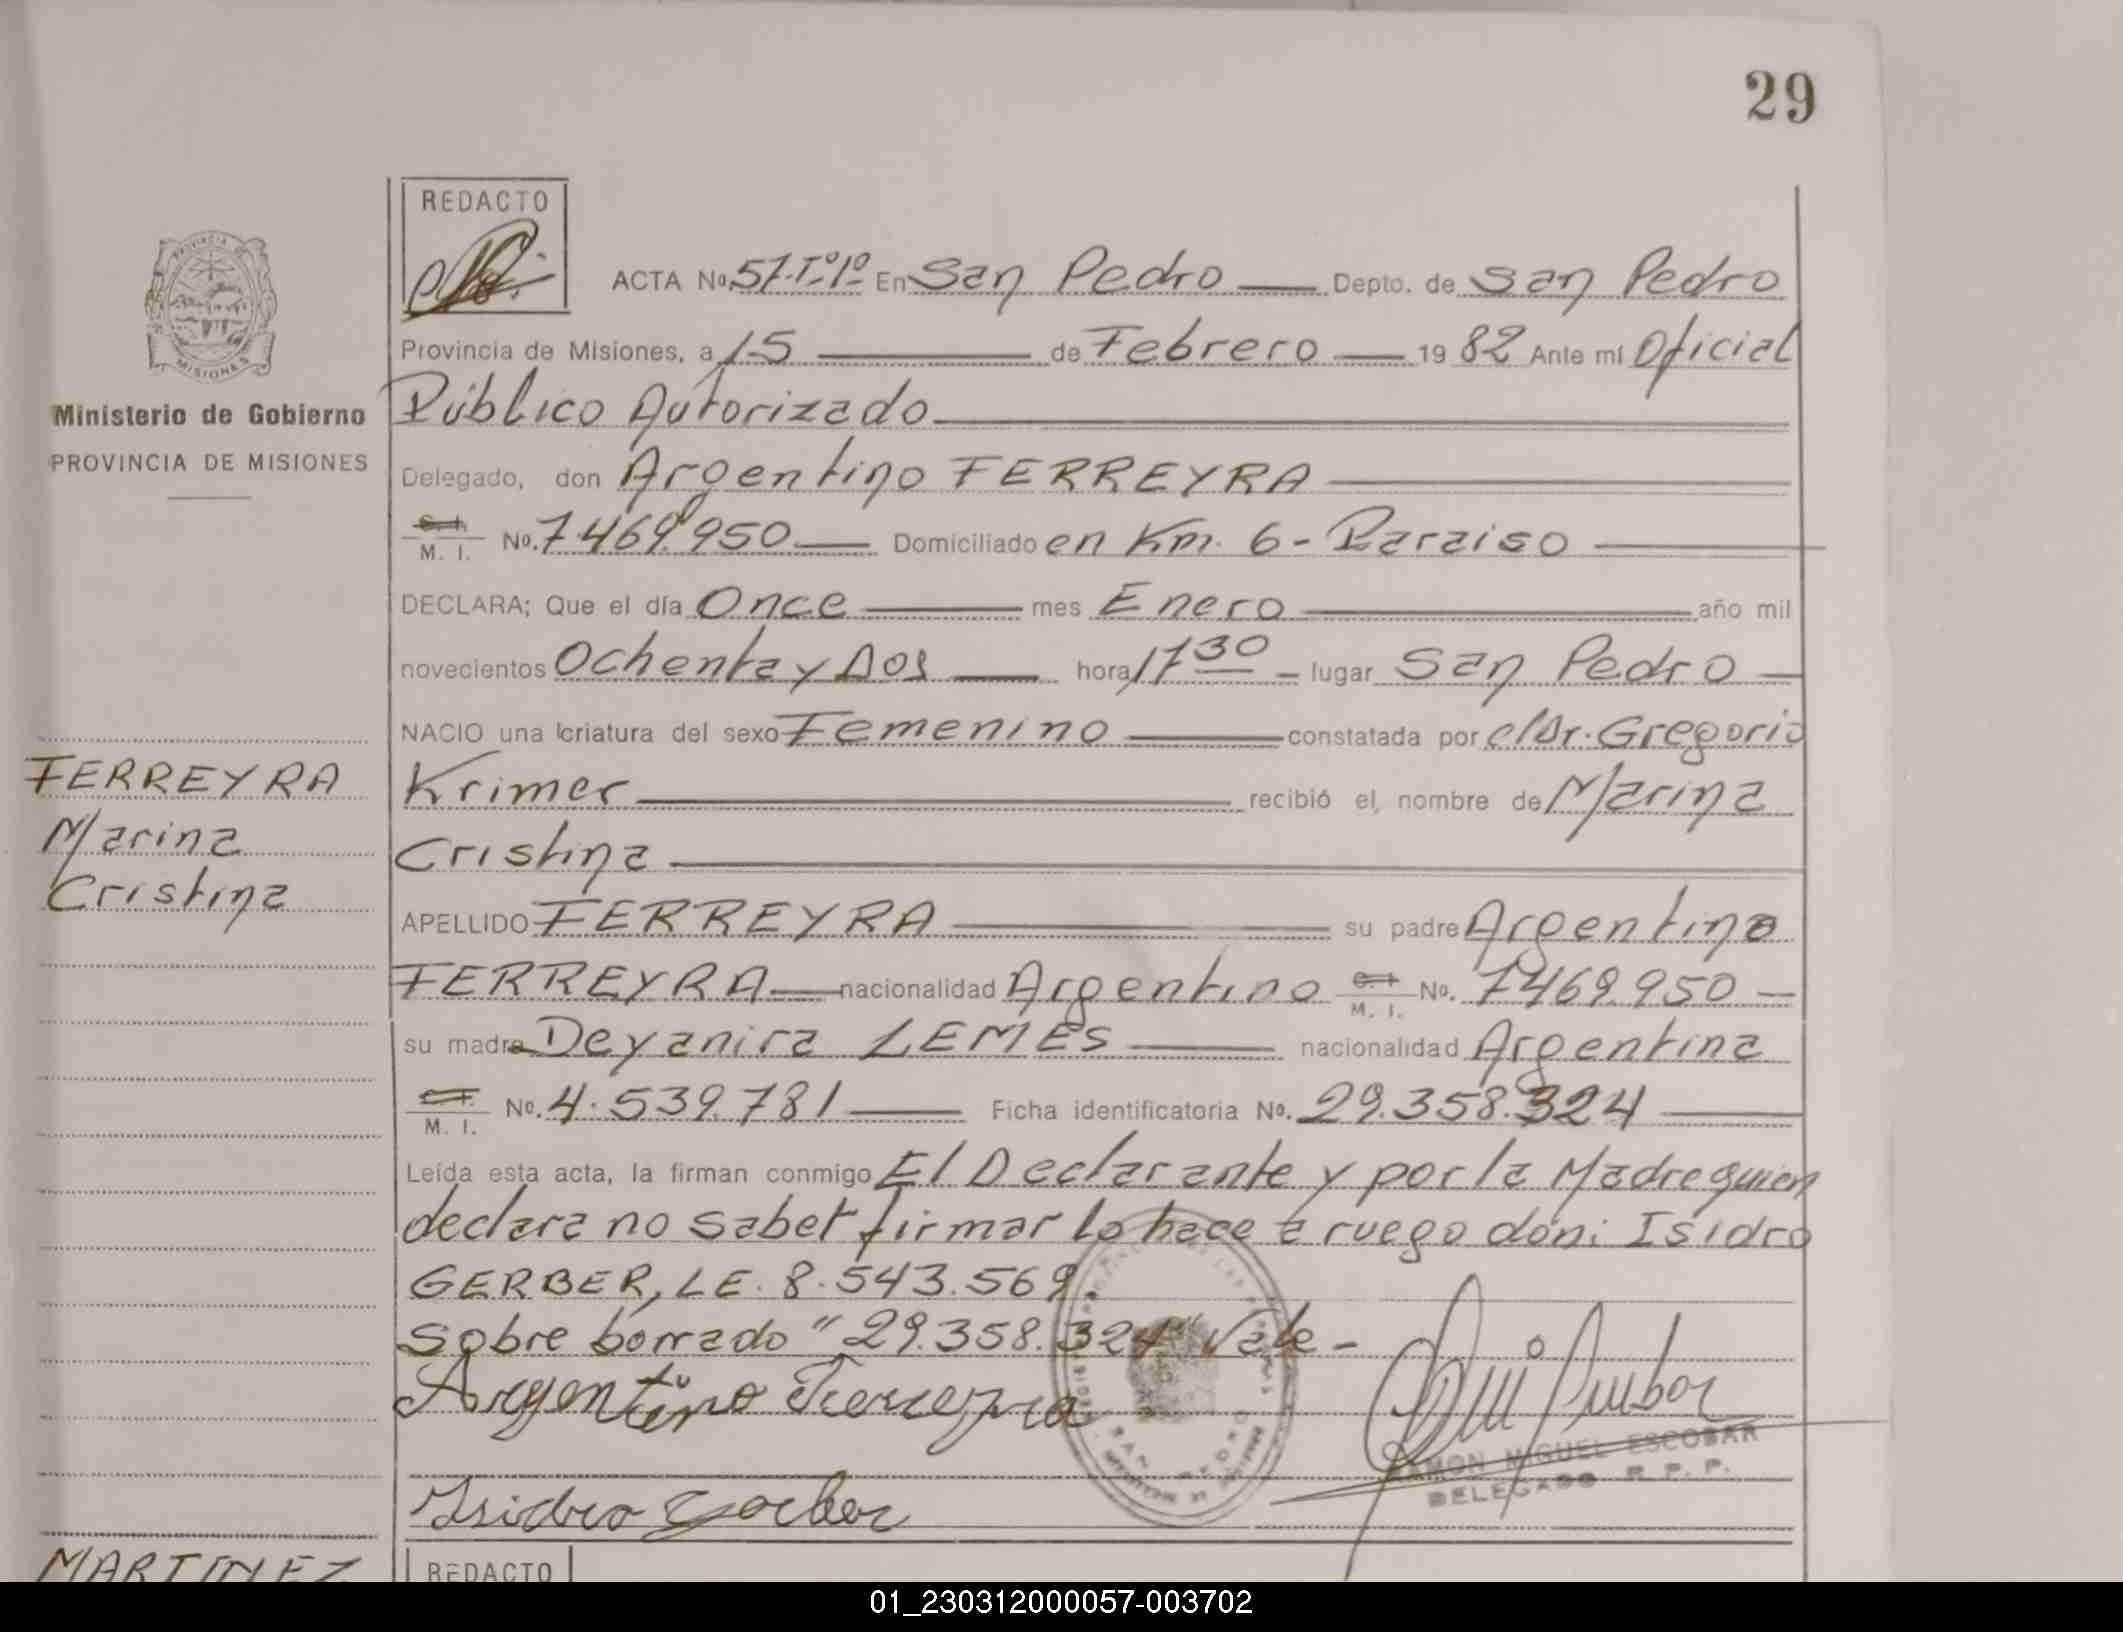 29
REDACTO
ACTA No. 57-Tº1º En San Pedro Depto. de San Pedro
Provincia de Misiones, a 15 de Febrero 1982 Ante mí Oficial
Público Autorizado
Delegado, don Argentino FERREYRA
M. I. No. 7.469.950 Domiciliado en Km. 6 - Paraiso
DECLARA; Que el día Once mes Enero año mil
novecientos Ochenta y Dos hora 17 30 - lugar San Pedro
NACIO una criatura del sexo Femenino constatada por el Dr. Gregorio
Krimer recibió el nombre de Marina
Cristina
APELLIDO FERREYRA su padre Argentino
FERREYRA nacionalidad Argentino M. I. No. 7469.950
su madre Deyanira LEMES nacionalidad Argentina
M. I. No. 4.539.781 Ficha identificatoria No. 29.358.324
Leída esta acta, la firman conmigo El Declarante y por la Madre quien
declara no saber firmar lo hace a ruego don: Isidro
GERBER, LE. 8.543.569.
Sobre borrado "29.358.324" Vale -
Argentino Ferreyra
RAMON MIGUEL ESCOBAR
DELEGADO R. P. P.
Isidro Gerber
PROVINCIA DE
MISIONES
Ministerio de Gobierno
PROVINCIA DE MISIONES
FERREYRA
Marina
Cristina
MARTINEZ
REDACTO
01_230312000057-003702